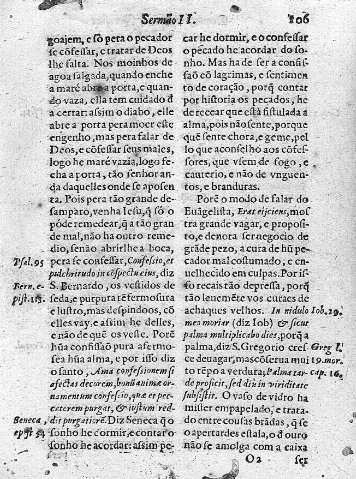 Sermão II. 106
goajem, e só pera o pecador
se cõfessar, e tratar de Deos
lhe falta. Nos moinhos de
agoa salgada, quando enche
a maré abre a porta, e quan-
do vaza, ella tem cuidado d
a cerrar: assim o diabo, elle
abre a porta pera moer este
engenho, mas pera falar de
Deos, e cõfessar seus males,
logo lhe maré vazia, logo fe-
cha a porta, tão senhor an-
da daquelles onde se aposen
ta. Pois pera tão grande de-
samparo, venha Iesu, q̃ só o
póde remedear, q̃ a tão gran
de mal, não ha outro reme-
dio, senão abrirlhe a boca,
pera se confessar, Confessio, et
pulchritudo in cõspectu eius, diz
S. Bernardo, os vestidos de
seda, e purpura tẽ fermosura
e lustro, mas despindoos, cõ
elles vay, e assim he delles,
e não de quẽ os veste. Porẽ
hũa confissão para afermo-
sea hũa alma, e por isso diz
o santo, Ama confessionem si
affectas decorem, bonũ animæ or-
namentum confessio, quæ et pec-
catorem purgat, & iustum red-
dit purgatiorẽ. Diz Seneca q̃ o
sonho he dormir, e contar o
sonho he acordar: assim pe-
Psal. 95
Bern. e-
pist. 113.
Beneca,
epist 54
car he dormir, e o confessar
o pecado he acordar do so-
nho. Mas ha de ser a confis-
saõ cõ lagrimas, e sentimen
to de coração, porq̃ contar
por historia os pecados, he
de recear que està fistulada a
alma, pois não sente, porque
quẽ sente chora, e geme, pel
lo que aconselho aos cõfes-
sores, que vsem de fogo, e
cauterio, e não de vnguen-
tos, e branduras.
Porẽ o modo de falar do
Euãgelista, Erat eijciens, mos
tra grande vagar, e proposi-
to, e denota ser negocio de
grãde pezo, a cura de hũ pe-
cador mal costumado, e en-
uelhecido em culpas. Por is-
so recais tão depressa, porq̃
tão leuemẽte vos curaes de
achaques velhos. In nidulo
meo moriar (diz Iob) & sicut
palma multiplicabo dies, porq̃ a
palma, diz S. Gregorio cres
ce deuagar, mas cõserua mui
to tẽpo a verdura; Palma tar-
de proficit, sed diu in viriditate
subsistit. O vaso de vidro ha
mister empapelado, e trata-
do entre cousas brãdas, q̃ se
o apertardes estala, o d'ouro
não se amolga com a caixa
Iob, 29.
Greg l.
19. mor.
cap. 16.
O 2